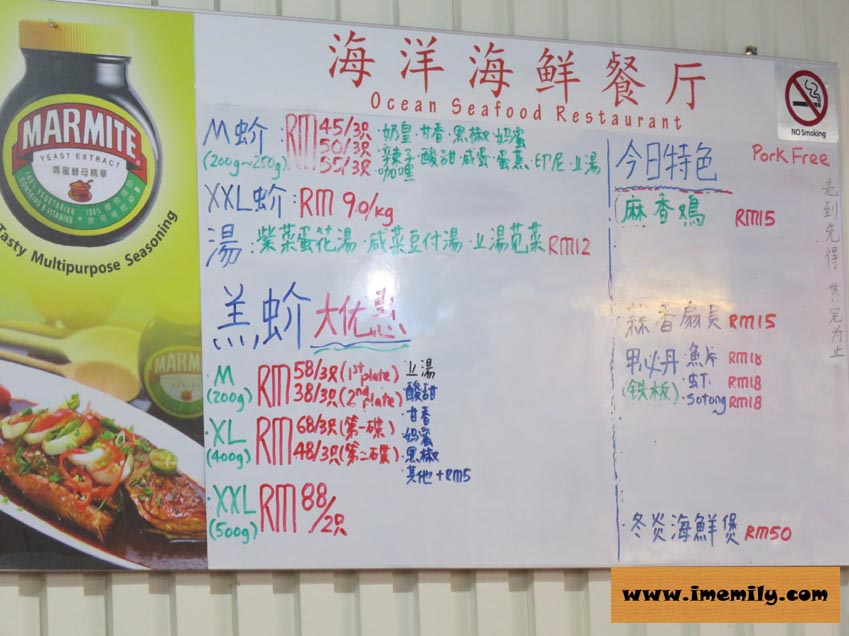 MARMITE
YEAST EXTRACT
媽蜜酵母精華
100% VEGETARIAN
CONTAINS B VITAMINS
Tasty Multipurpose Seasoning
MARM
海洋海鲜餐厅
Ocean Seafood Restaurant
NO Smoking
Pork Free
M蚧: RM 45/3只 · 奶皇 · 甘香 · 黑椒 · 妈蜜
(200g~250g) 50/3只 · 辣子 · 酸甜 · 咸蛋 · 蛋蒸 · 印尼 · 上湯
55/3只 · 咖哩
XXL蚧: RM 90/kg
湯: 紫菜蛋花湯 · 咸菜豆付湯 · 上湯苋菜 RM12
羔蚧大优惠
·M RM 58/3只 (1st plate)
(200g) 38/3只 (2nd plate)
·XL RM 68/3只 (第一碟)
(400g) 48/3只 (第二碟)
·XXL RM 88/2只
(500g)
上湯
·酸甜
·甘香
·妈蜜
·黑椒
其他 + RM5
今日特色
麻香鳮 RM15
蒜香扇貝 RM15
甲必丹 · 魚片 RM18
(铁板) · 虾 RM18
· Sotong RM18
·冬炎海鮮煲 RM50
先到先得 售完为止
www.imemily.com